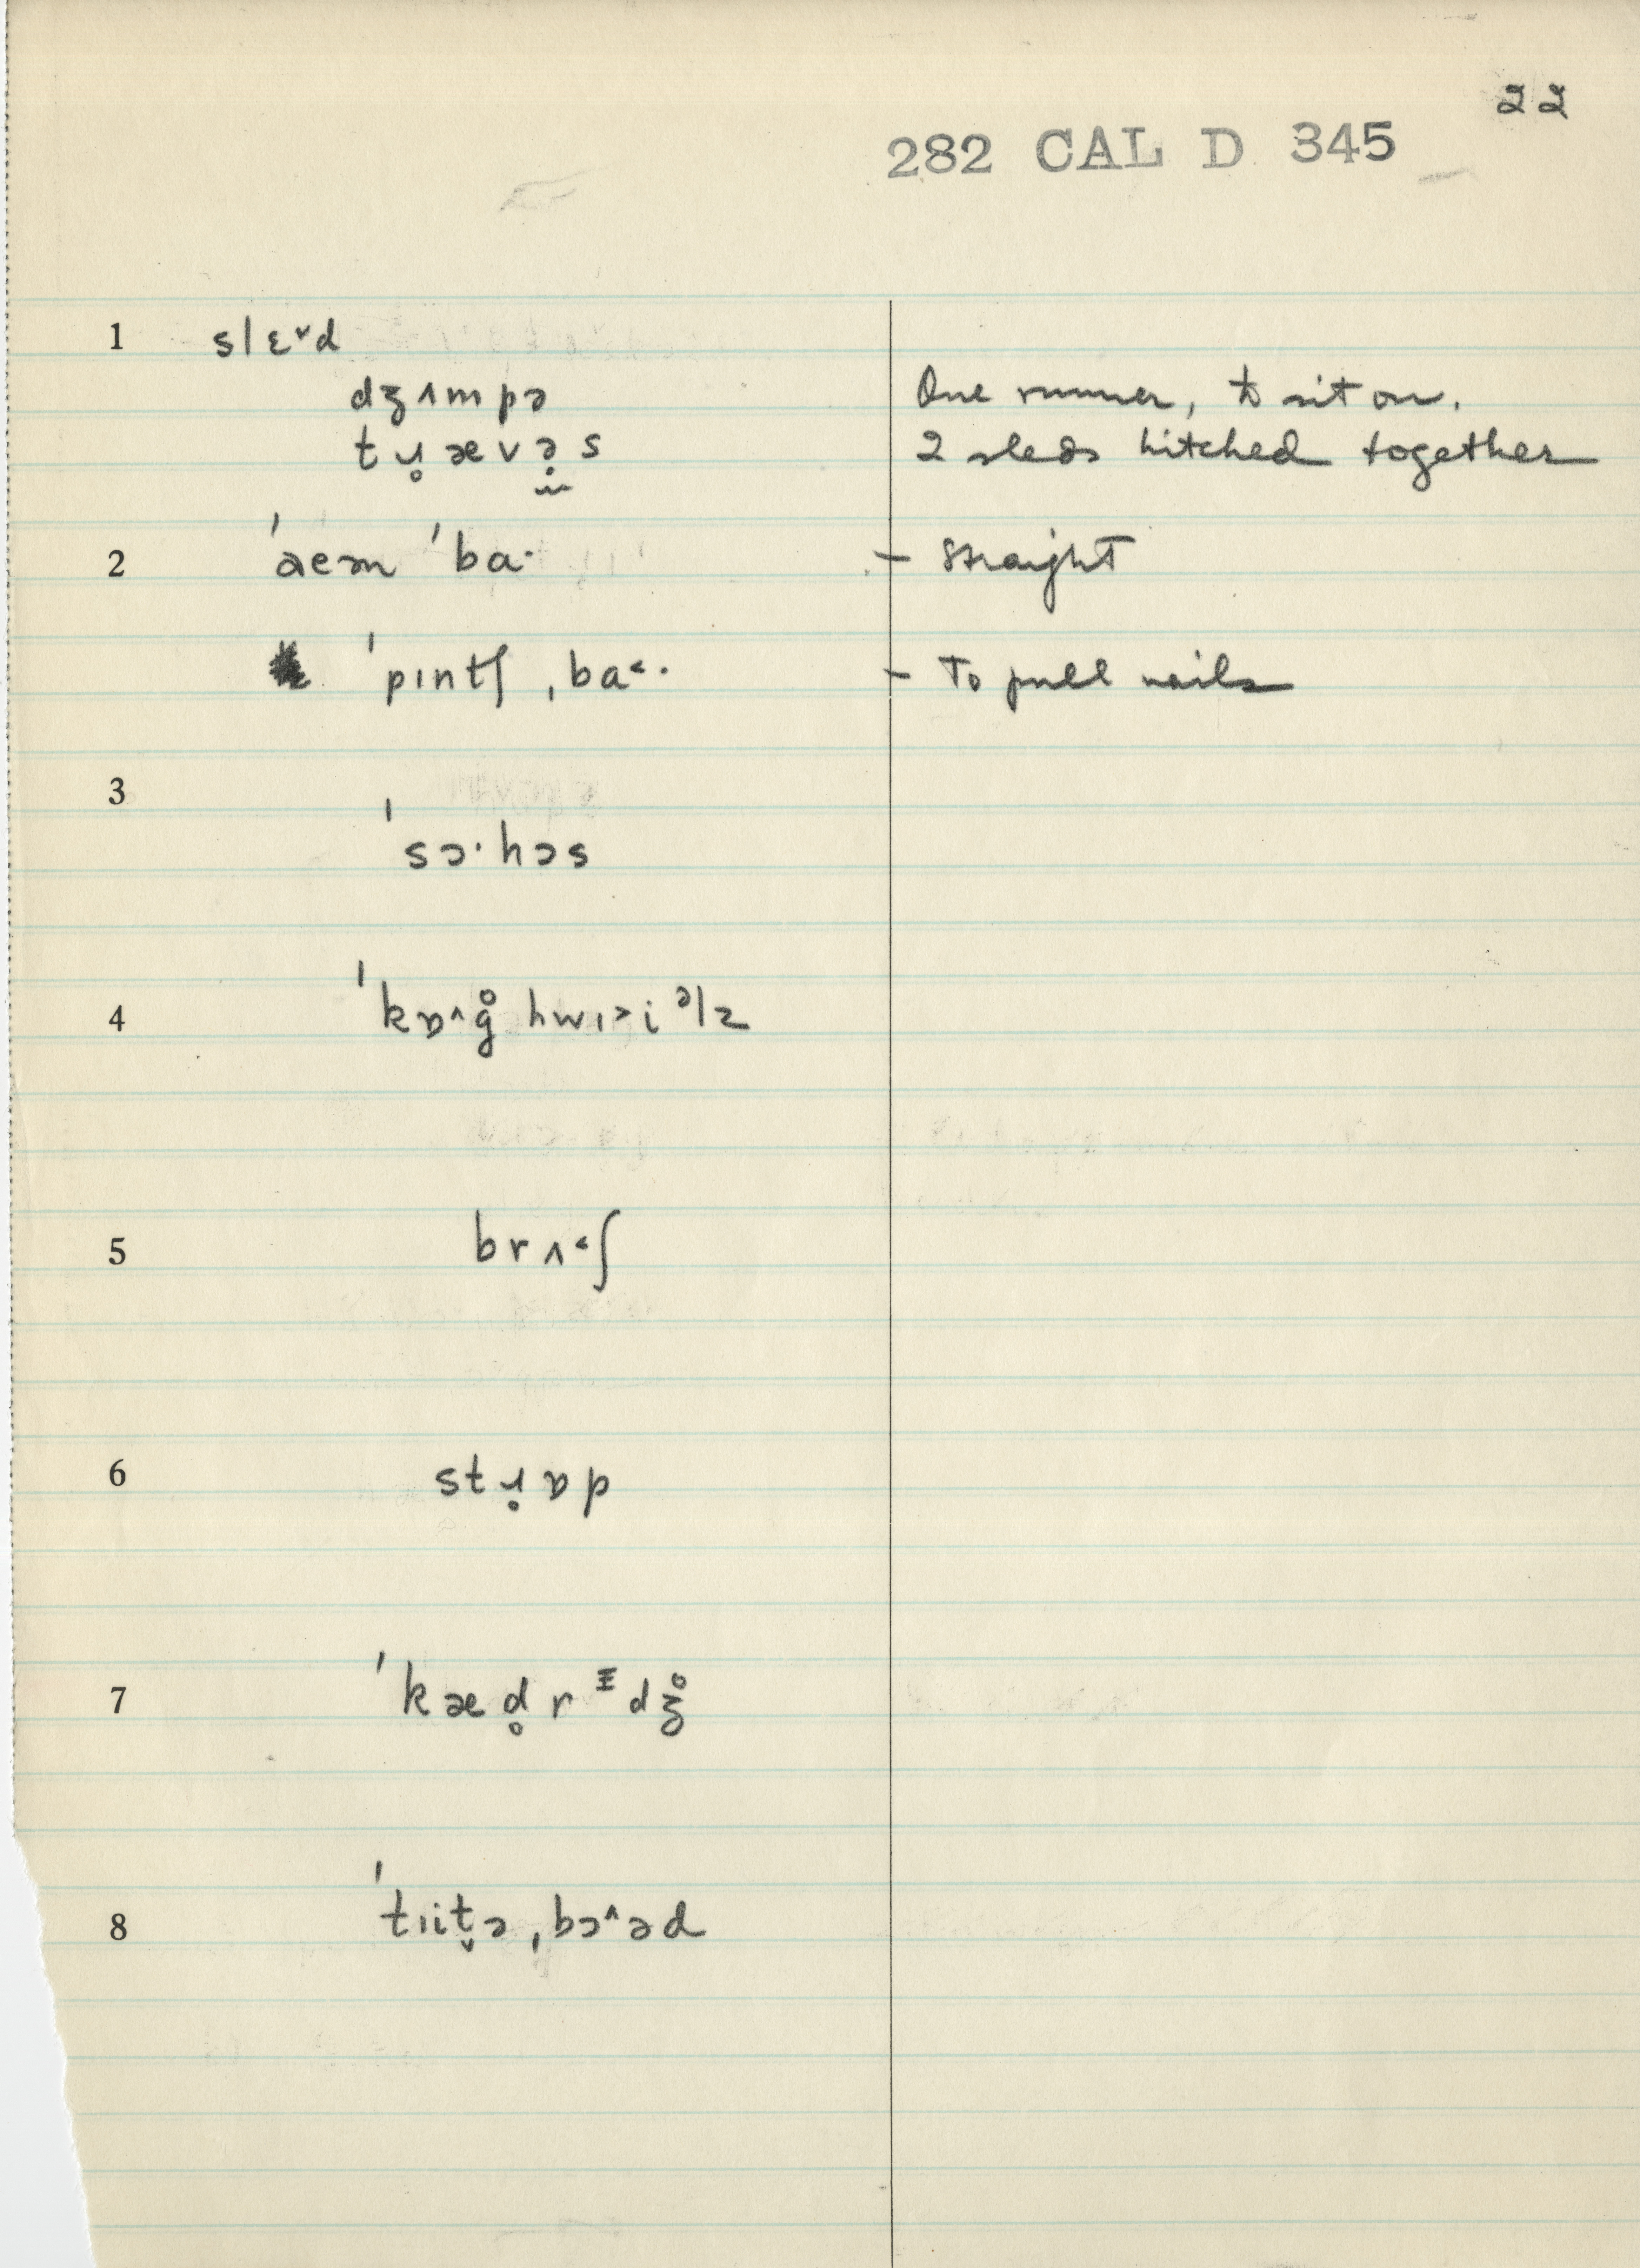 22
282 CAL D 345
1 slɛ˅d
dʒʌmpə One runner, to sit on.
tɹ̥ævə̣s 2 sleds hitched together
2 ˈæɛm ˈba· - straight
ˈpɪntʃ ˌba˂· - To pull nails
3
ˈsɔ·hɔs
4 ˈkɒ˄g̊ hwɪ˃iᵊlz
5 brʌ˂ʃ
6 stɹ̥ɒp
7 ˈkæd̥rᵻdʒ̊
8 ˈtɪit̬ə ˌbɔ˄əd